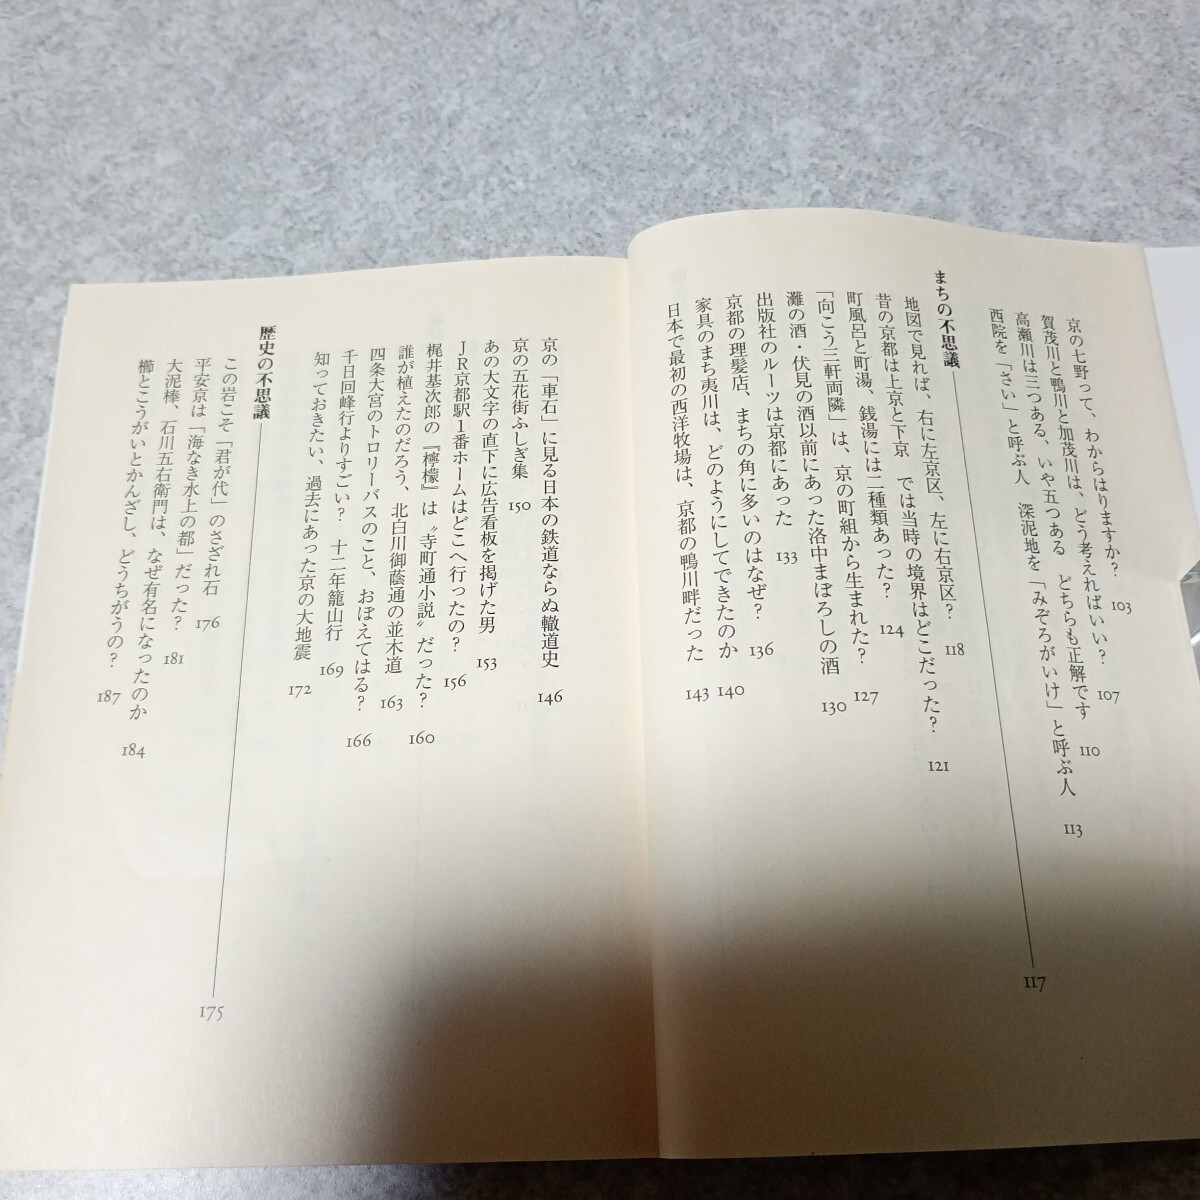 京の七野って、わからはりますか？ 103
賀茂川と鴨川と加茂川は、どう考えればいい？ 107
高瀬川は三つある、いや五つある　どちらも正解です 110
西院を「さい」と呼ぶ人　深泥地を「みぞろがいけ」と呼ぶ人 113
まちの不思議 117
地図で見れば、右に左京区、左に右京区？ 118
昔の京都は上京と下京　では当時の境界はどこだった？ 121
町風呂と町湯、銭湯には二種類あった？ 124
「向こう三軒両隣」は、京の町組から生まれた？ 127
灘の酒・伏見の酒以前にあった洛中まぼろしの酒 130
出版社のルーツは京都にあった 133
京都の理髪店、まちの角に多いのはなぜ？ 136
家具のまち夷川は、どのようにしてできたのか 140
日本で最初の西洋牧場は、京都の鴨川畔だった 143
京の「車石」に見る日本の鉄道ならぬ轍道史 146
京の五花街ふしぎ集 150
あの大文字の直下に広告看板を掲げた男 153
ＪＲ京都駅１番ホームはどこへ行ったの？ 156
梶井基次郎の『檸檬』は〝寺町通小説〟だった？ 160
誰が植えたのだろう、北白川御蔭通の並木道 163
四条大宮のトロリーバスのこと、おぼえてはる？ 166
千日回峰行よりすごい？　十二年籠山行 169
知っておきたい、過去にあった京の大地震 172
歴史の不思議 175
この岩こそ「君が代」のさざれ石 176
平安京は「海なき水上の都」だった？ 181
大泥棒、石川五右衛門は、なぜ有名になったのか 184
櫛とこうがいとかんざし、どうちがうの？ 187